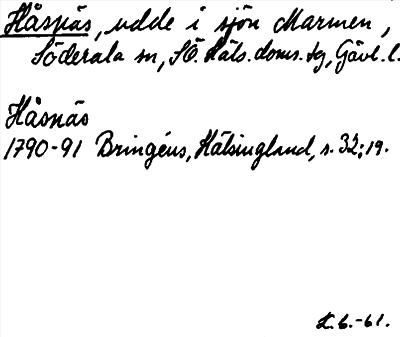 Håsnäs, udde i sjön Marmen,
Söderala sn, SÖ. Häls. doms. sg, Gävl. l.
Håsnäs
1790-91 Bringéus, Hälsingland, s. 32; 19.
L. b. -61.